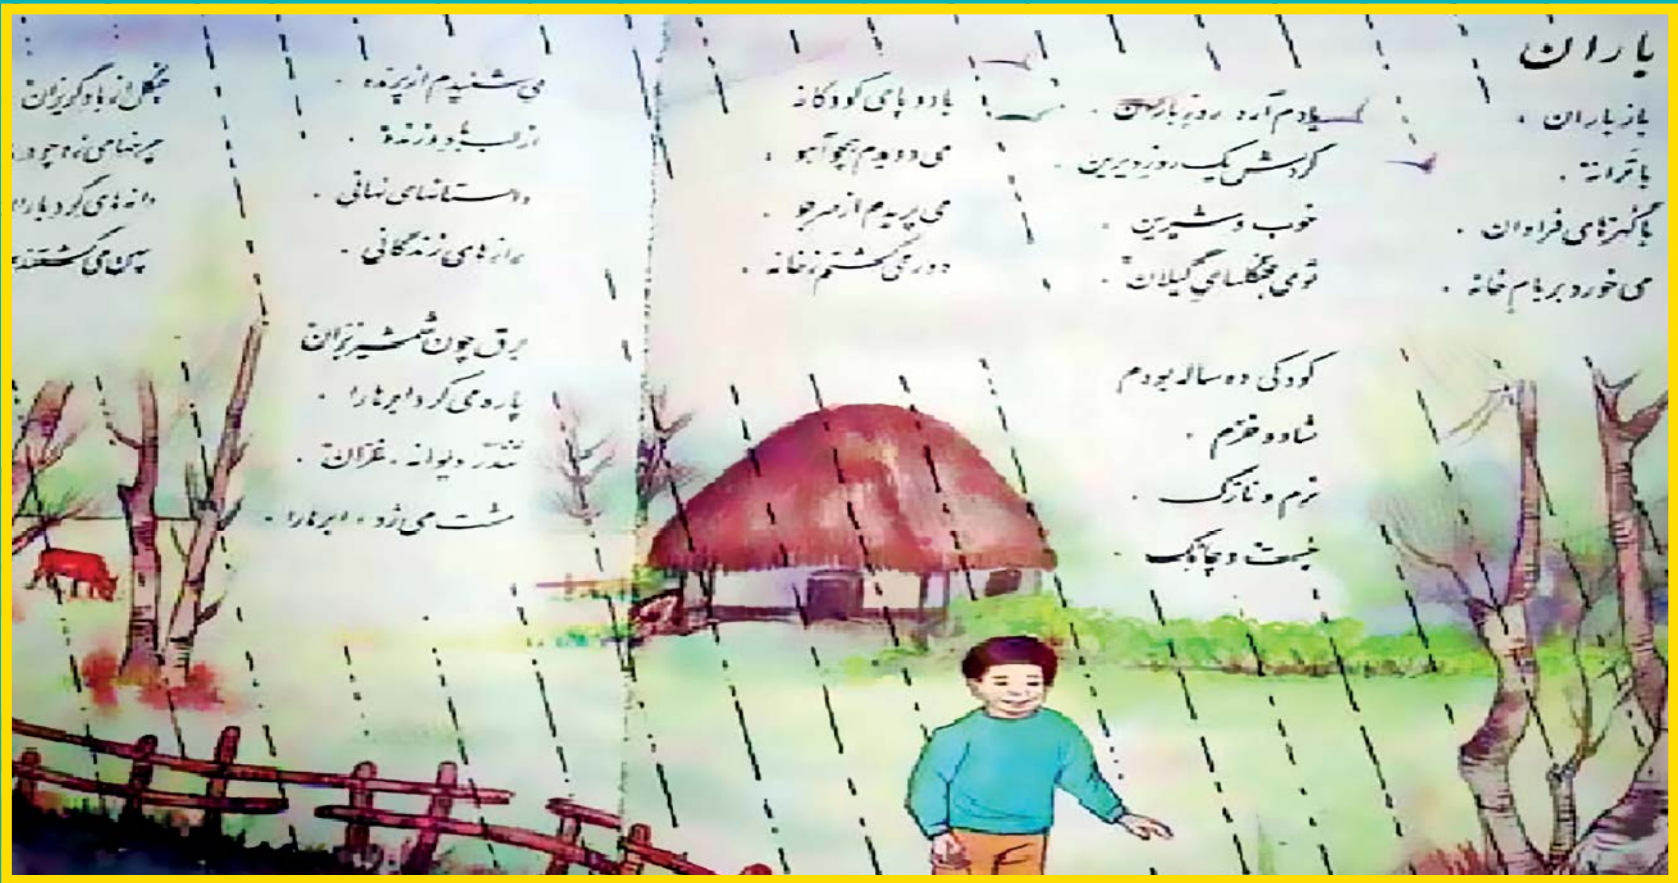 باران
باز باران ،
با ترانه ،
با گهرهای فراوان ،
می خورد بر بام خانه .
یادم آرد روز باران ،
گردش یک روز دیرین ،
خوب و شیرین ،
توی جنگلهای گیلان .
کودکی ده ساله بودم
شاد و خرّم ،
نرم و نازک ،
چست و چابک .
با دو پای کودکانه
می دویدم همچو آهو ،
می پریدم از سر جو ،
دور می گشتم ز خانه .
می شنیدم از پرنده ،
از لب باد وزنده ،
داستانهای نهانی ،
رازهای زندگانی .
برق چون شمشیر بُرّان
پاره می کرد ابرها را ،
تندر دیوانه ، غرّان ،
مشت می زد ، ابرها را .
جنگل از باد گریزان
چرخها می زد چو
دانه های گرد
پهن می گشتند